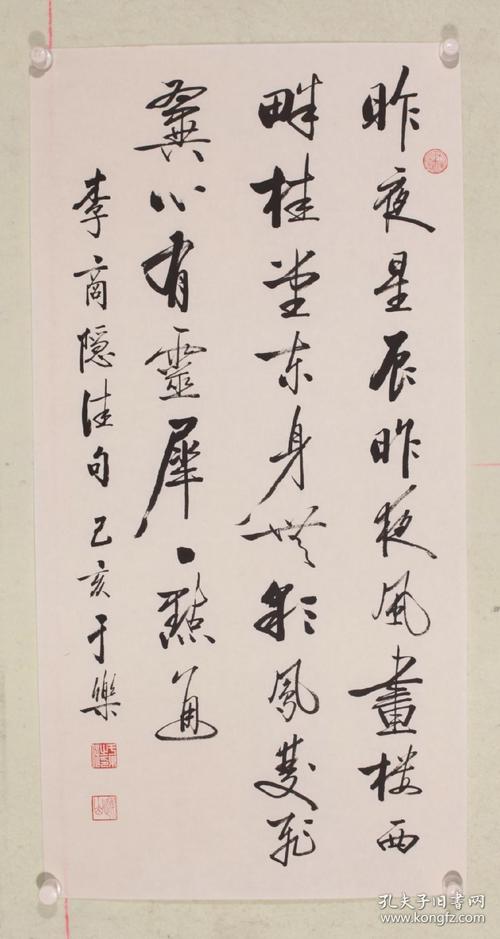 昨夜星辰昨夜風畫楼西
畔桂堂东身無彩鳳雙飛
翼心有靈犀一點通
李商隐佳句己亥于樂
孔夫子旧书网
www.kongfz.com